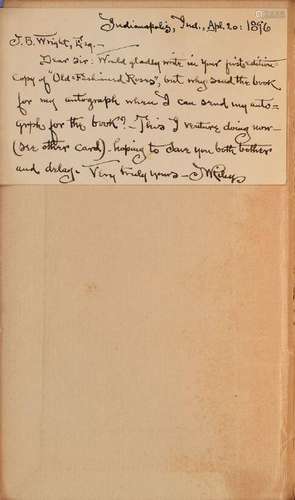 Indianapolis, Ind., Apl. 20: 1896
J. B. Wright, Esq. —
Dear Sir: Would gladly write in your first-edition
copy of "Old-Fashioned Roses," but why send the book
for my autograph when I can send my auto-
graphs for the book? — This I venture doing now —
(see other card) — hoping to save you both bother
and delay. — Very truly yours — JWRiley